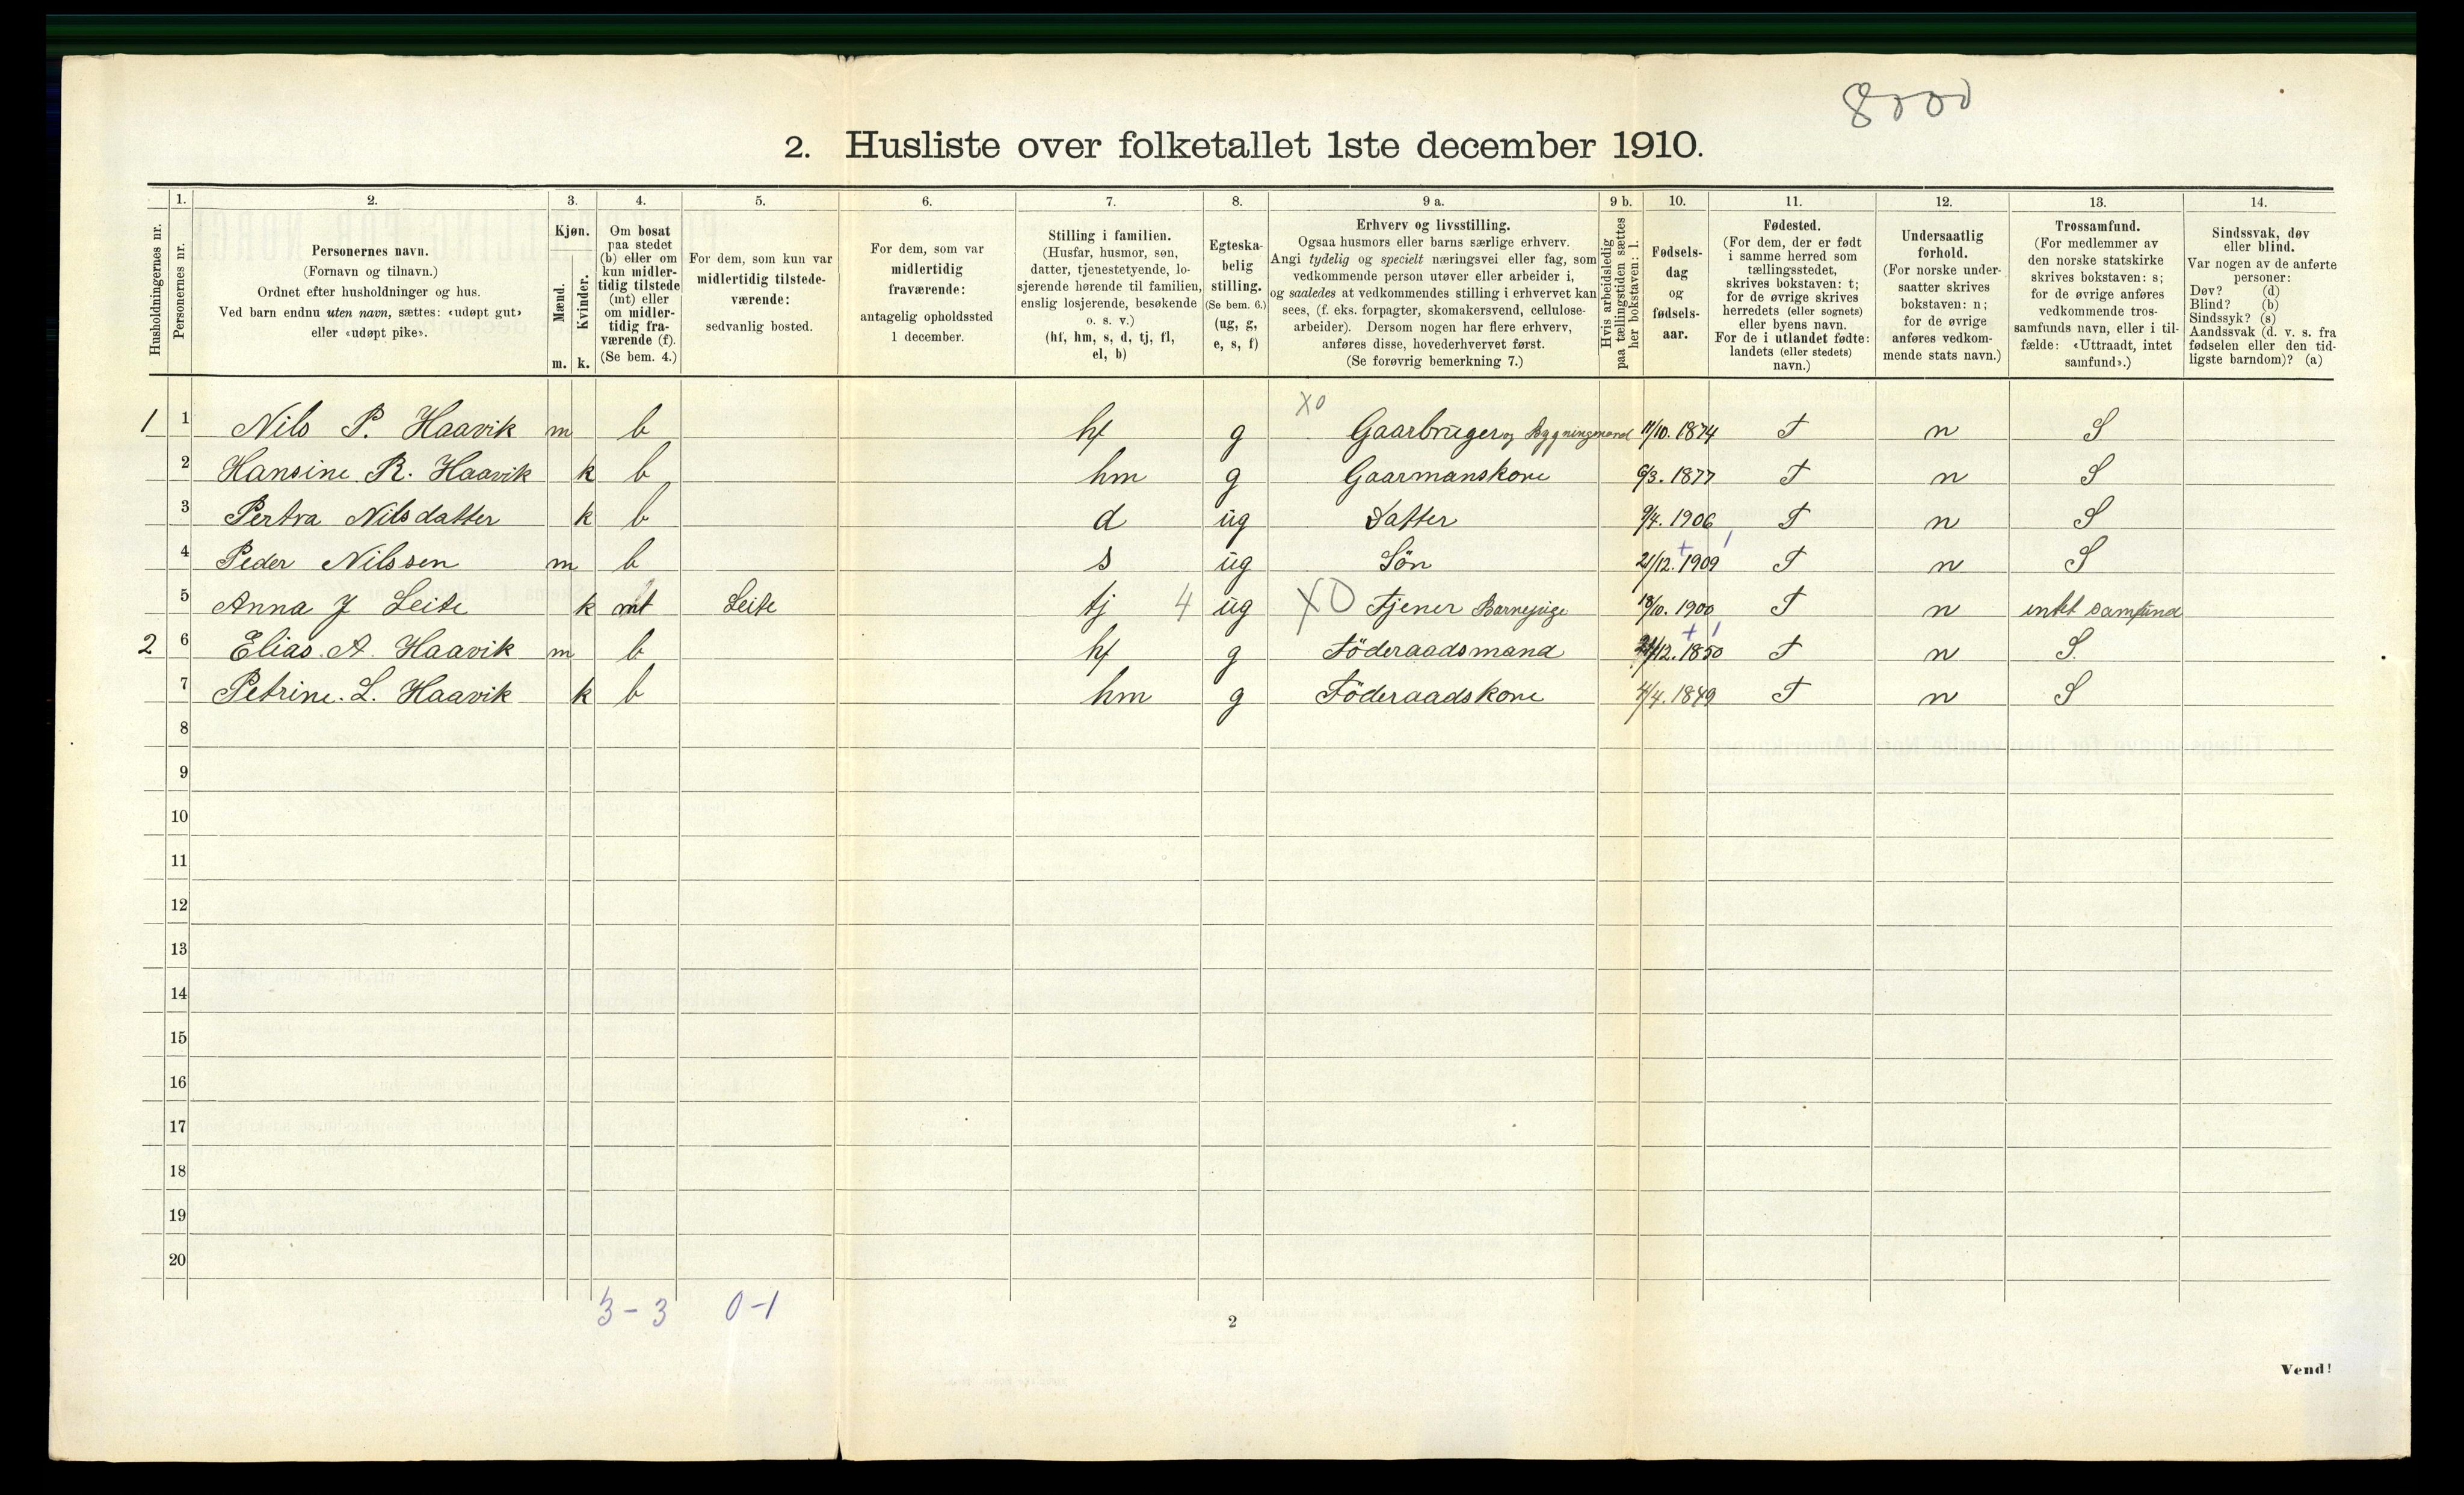 8000
2. Husliste over folketallet 1ste december 1910.
Husholdningernes nr.
1.
Personernes nr.
2.
Personernes navn.
(Fornavn og tilnavn.)
Ordnet efter husholdninger og hus.
Ved barn endnu uten navn, sættes: «udøpt gut»
eller «udøpt pike».
3.
Kjøn.
Mænd.
Kvinder.
m. k.
4.
Om bosat
paa stedet
(b) eller om
kun midler-
tidig tilstede
(mt) eller
om midler-
tidig fra-
værende (f).
(Se bem. 4.)
5.
For dem, som kun var
midlertidig tilstede-
værende:
sedvanlig bosted.
6.
For dem, som var
midlertidig
fraværende:
antagelig opholdssted
1 december.
7.
Stilling i familien.
(Husfar, husmor, søn,
datter, tjenestetyende, lo-
sjerende hørende til familien,
enslig losjerende, besøkende
o. s. v.)
(hf, hm, s, d, tj, fl,
el, b)
8.
Egteska-
belig
stilling.
(Se bem. 6.)
(ug, g,
e, s, f)
9 a.
Erhverv og livsstilling.
Ogsaa husmors eller barns særlige erhverv.
Angi tydelig og specielt næringsvei eller fag, som
vedkommende person utøver eller arbeider i,
og saaledes at vedkommendes stilling i erhvervet kan
sees, (f. eks. forpagter, skomakersvend, cellulose-
arbeider). Dersom nogen har flere erhverv,
anføres disse, hovederhvervet først.
(Se forøvrig bemerkning 7.)
9 b.
Hvis arbeidsledig
paa tællingstiden sættes
her bokstaven: l.
10.
Fødsels-
dag
og
fødsels-
aar.
11.
Fødested.
(For dem, der er født
i samme herred som
tællingsstedet,
skrives bokstaven: t;
for de øvrige skrives
herredets (eller sognets)
eller byens navn.
For de i utlandet fødte:
landets (eller stedets)
navn.)
12.
Undersaatlig
forhold.
(For norske under-
saatter skrives
bokstaven: n;
for de øvrige
anføres vedkom-
mende stats navn.)
13.
Trossamfund.
(For medlemmer av
den norske statskirke
skrives bokstaven: s;
for de øvrige anføres
vedkommende tros-
samfunds navn, eller i til-
fælde: «Uttraadt, intet
samfund».)
14.
Sindssvak, døv
eller blind.
Var nogen av de anførte
personer:
Døv? (d)
Blind? (b)
Sindssyk? (s)
Aandssvak (d. v. s. fra
fødselen eller den tid-
ligste barndom)? (a)
X0
1 1 Nils P. Haavik m b hf g Gaarbruger og Bygningmand 11/10. 1874 T n S
2 Hansine R. Haavik k b hm g Gaarmanskone 6/3. 1877 T n S
3 Pertra Nilsdatter k b d ug Datter 9/4. 1906 T n S
4 Peder Nilssen m b s ug Sön 21/12. 1909 T n S
5 Anna J Leite k mt Leite tj 4 ug X0 Tjener Barnepige 18/10. 1900 T n intet samfund
2 6 Elias A Haavik m b hf g Föderaadsmand /12. 1850 T n S.
7 Petrine L. Haavik k b hm g Föderaadskone 4/4. 1849 T n S
8
9
10
11
12
13
14
15
16
17
18
19
20
3-3 0-1
2
Vend!